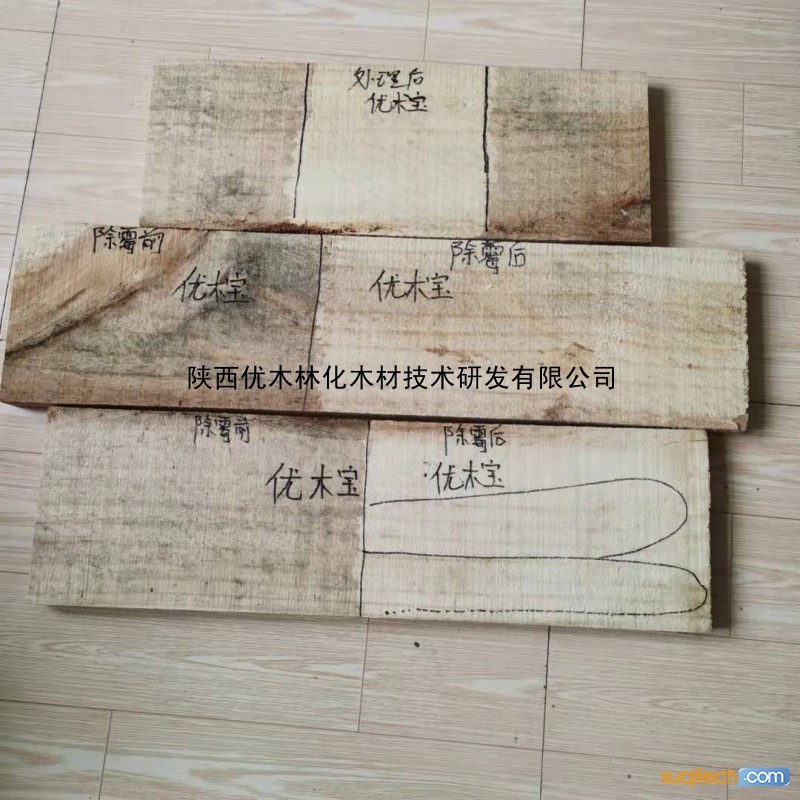 处理后
优木宝
除霉前
除霉后
优木宝
优木宝
陕西优木林化木材技术研发有限公司
除霉前
除霉后
优木宝
优木宝